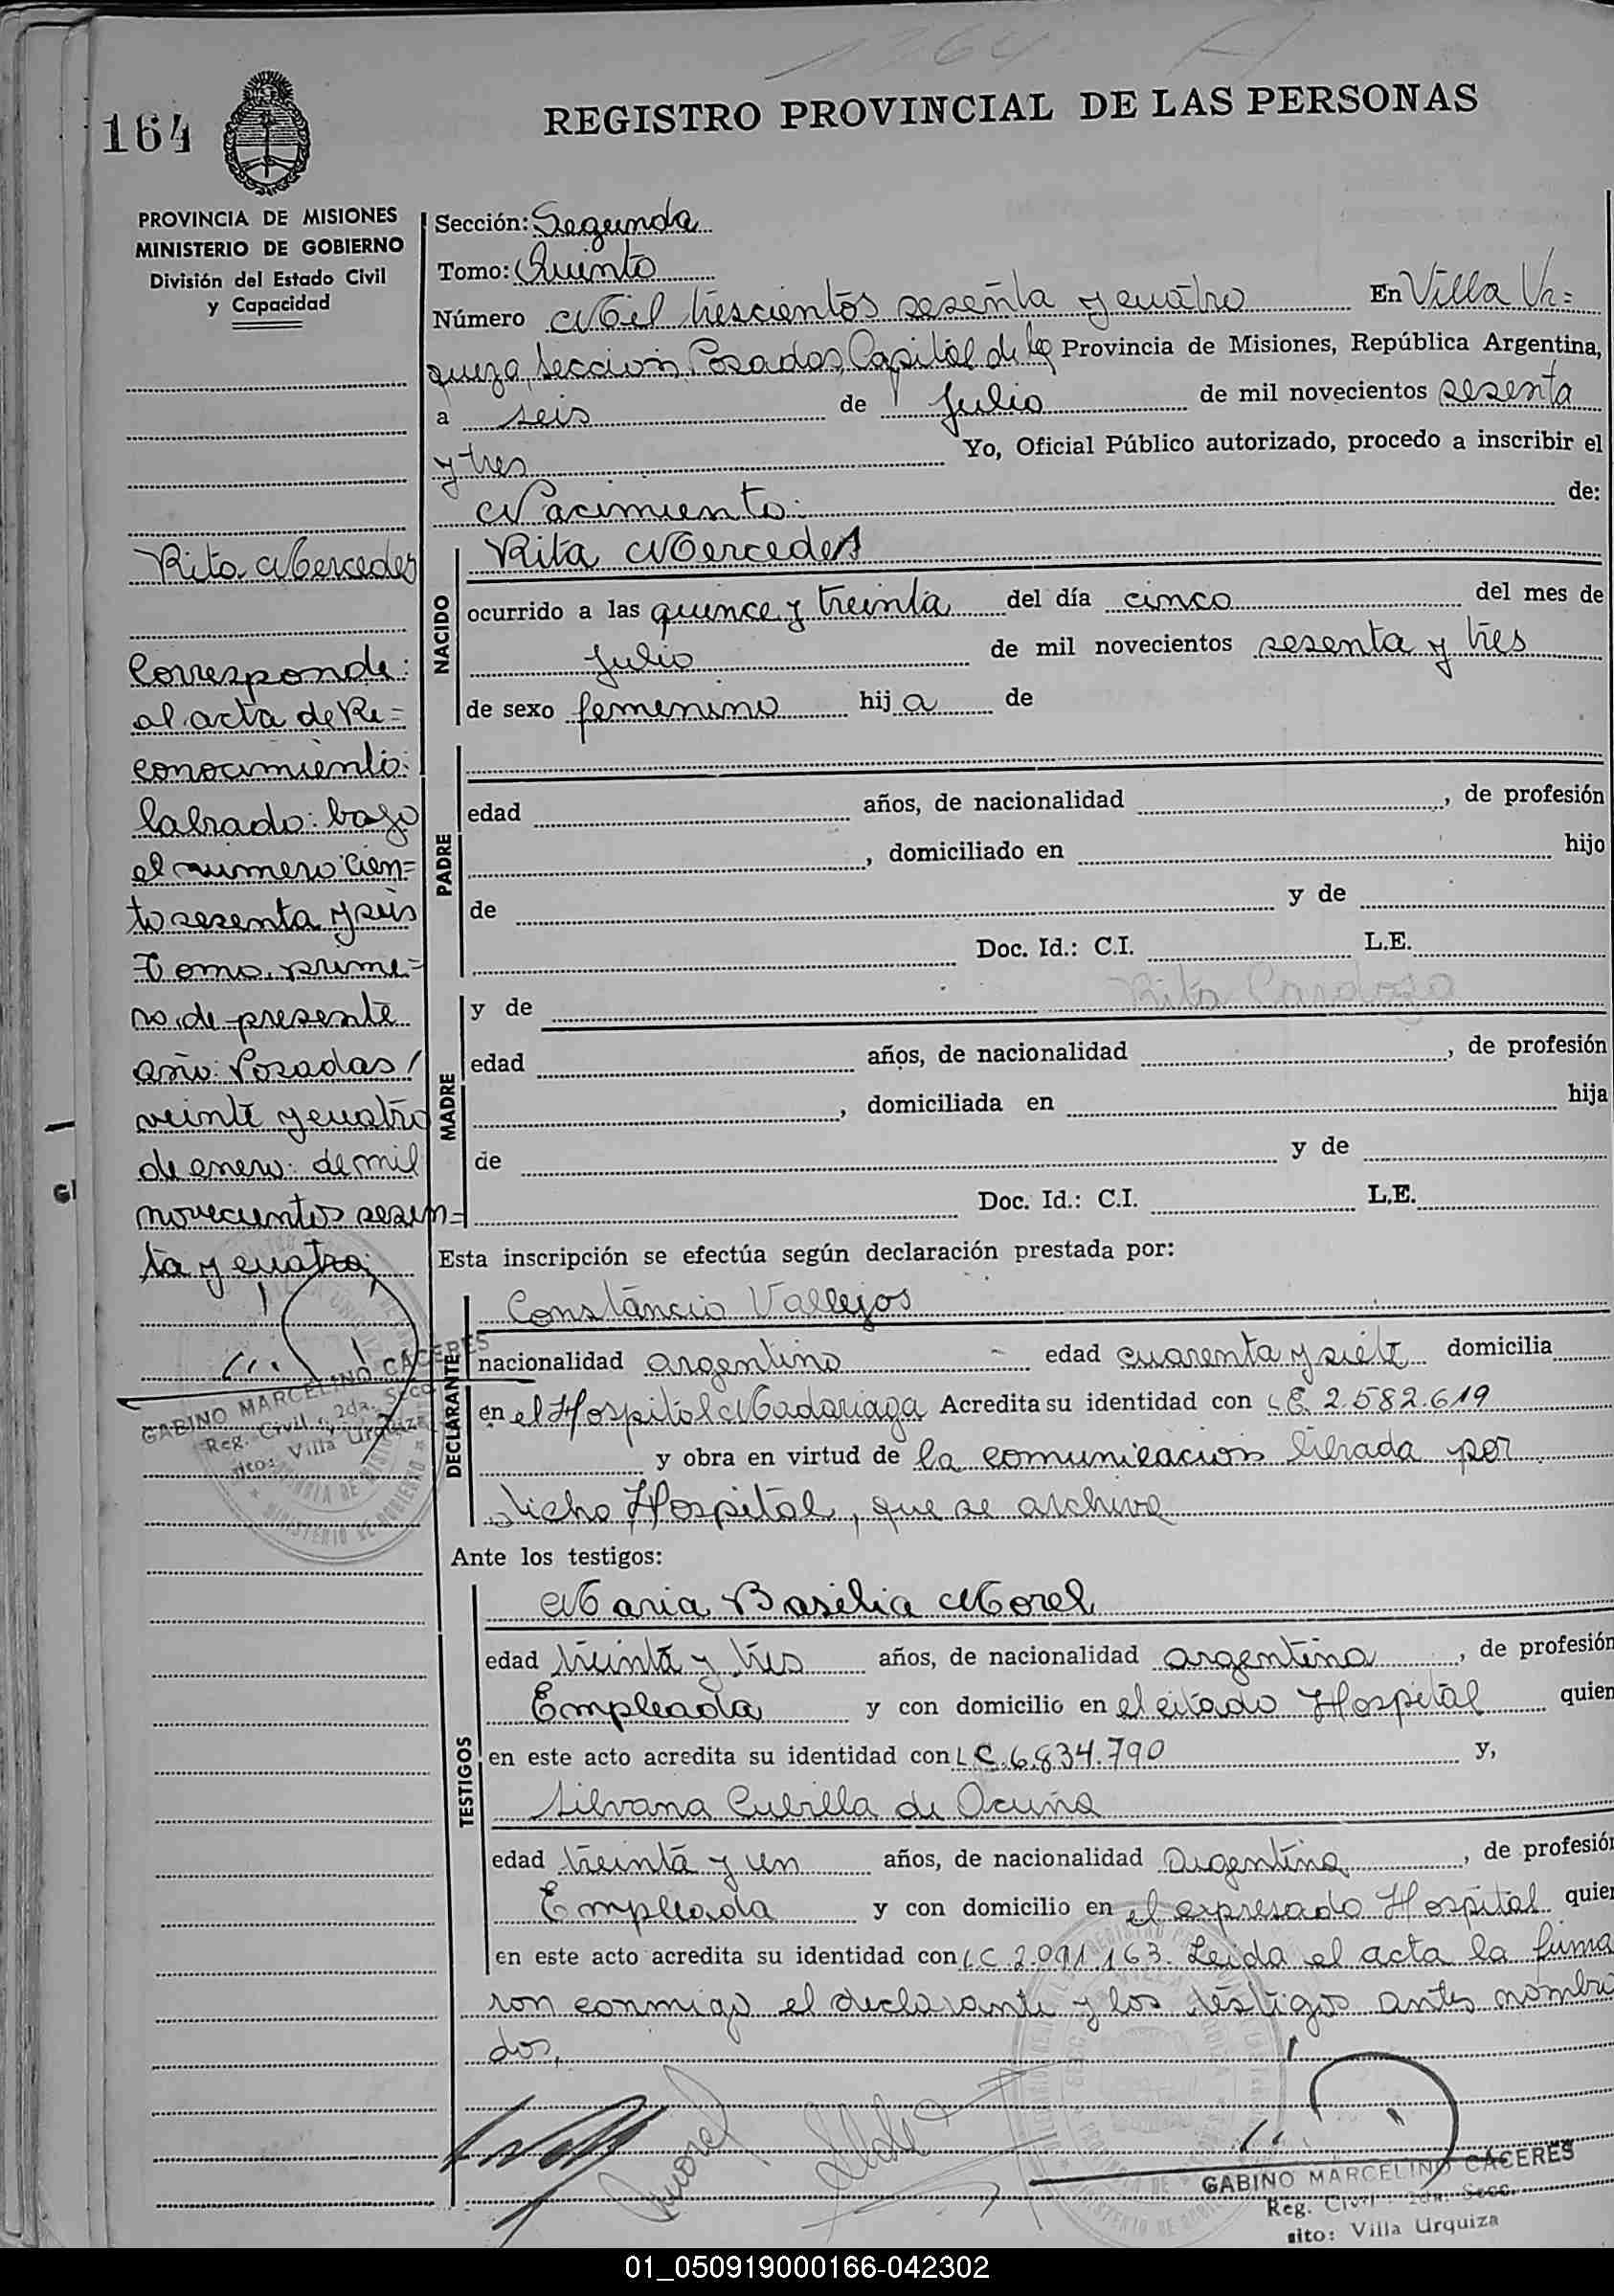 1364
164
REGISTRO PROVINCIAL DE LAS PERSONAS
PROVINCIA DE MISIONES
MINISTERIO DE GOBIERNO
División del Estado Civil
y Capacidad
Rita Mercedes
Corresponde:
al acta de Re=
conocimiento:
labrado: bajo
el numero Cien=
to sesenta y seis
Tomo. prime=
ro de presente
año: Posadas/
veinte y cuatro
de enero: de mil
novecientos sesen=
ta y cuatro:
GABINO MARCELINO CACERES
Reg. Civil : 2da. Secc.
sito: Villa Urquiza
Sección: Segunda
Tomo: Quinto
Número Mil trescientos sesenta y cuatro En Villa Ur=
quiza, Seccion, Posadas, Capital de la Provincia de Misiones, República Argentina,
a seis de Julio de mil novecientos sesenta
y tres Yo, Oficial Público autorizado, procedo a inscribir el
Nacimiento: de:
NACIDO
Rita Mercedes
ocurrido a las quince y treinta del día cinco del mes de
Julio de mil novecientos sesenta y tres
de sexo femenino hij a de
PADRE
edad años, de nacionalidad , de profesión
, domiciliado en hijo
de y de
Doc. Id.: C.I. L.E.
MADRE
y de Rita Cardozo
edad años, de nacionalidad , de profesión
, domiciliada en hija
de y de
Doc. Id.: C.I. L.E.
Esta inscripción se efectúa según declaración prestada por:
DECLARANTE
Constancio Vallejos
nacionalidad argentino edad cuarenta y siete domicilia
en el Hospital Madariaga Acredita su identidad con L E. 2.582.619
y obra en virtud de la comunicacion librada por
dicho Hospital, que se archiva
Ante los testigos:
TESTIGOS
Maria Basilia Morel
edad treinta y tres años, de nacionalidad argentina , de profesión
Empleada y con domicilio en el citado Hospital quien
en este acto acredita su identidad con L C. 6.834.790 y,
Silvana Cubilla de Acuña
edad treinta y un años, de nacionalidad Argentina , de profesión
Empleada y con domicilio en el expresado Hospital quien
en este acto acredita su identidad con L C. 2.091.163. Leida el acta la firma
ron conmigo el declarante y los testigos antes nombra
dos,
Morel
GABINO MARCELINO CACERES
Reg. Civil : 2da. Secc.
sito: Villa Urquiza
01_050919000166-042302